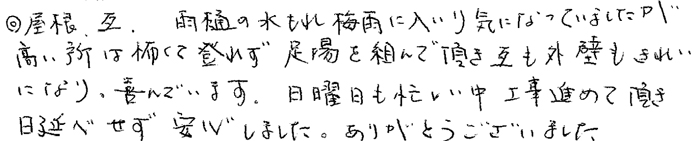 ◎屋根、互、雨樋の水もれ梅雨に入いり気になっていましたが
高い所は怖くて登れず足場を組んで頂き互も外壁もきれい
になり、喜んでいます。日曜日も忙しい中工事進めて頂き
日延べせず安心しました。ありがとうございました